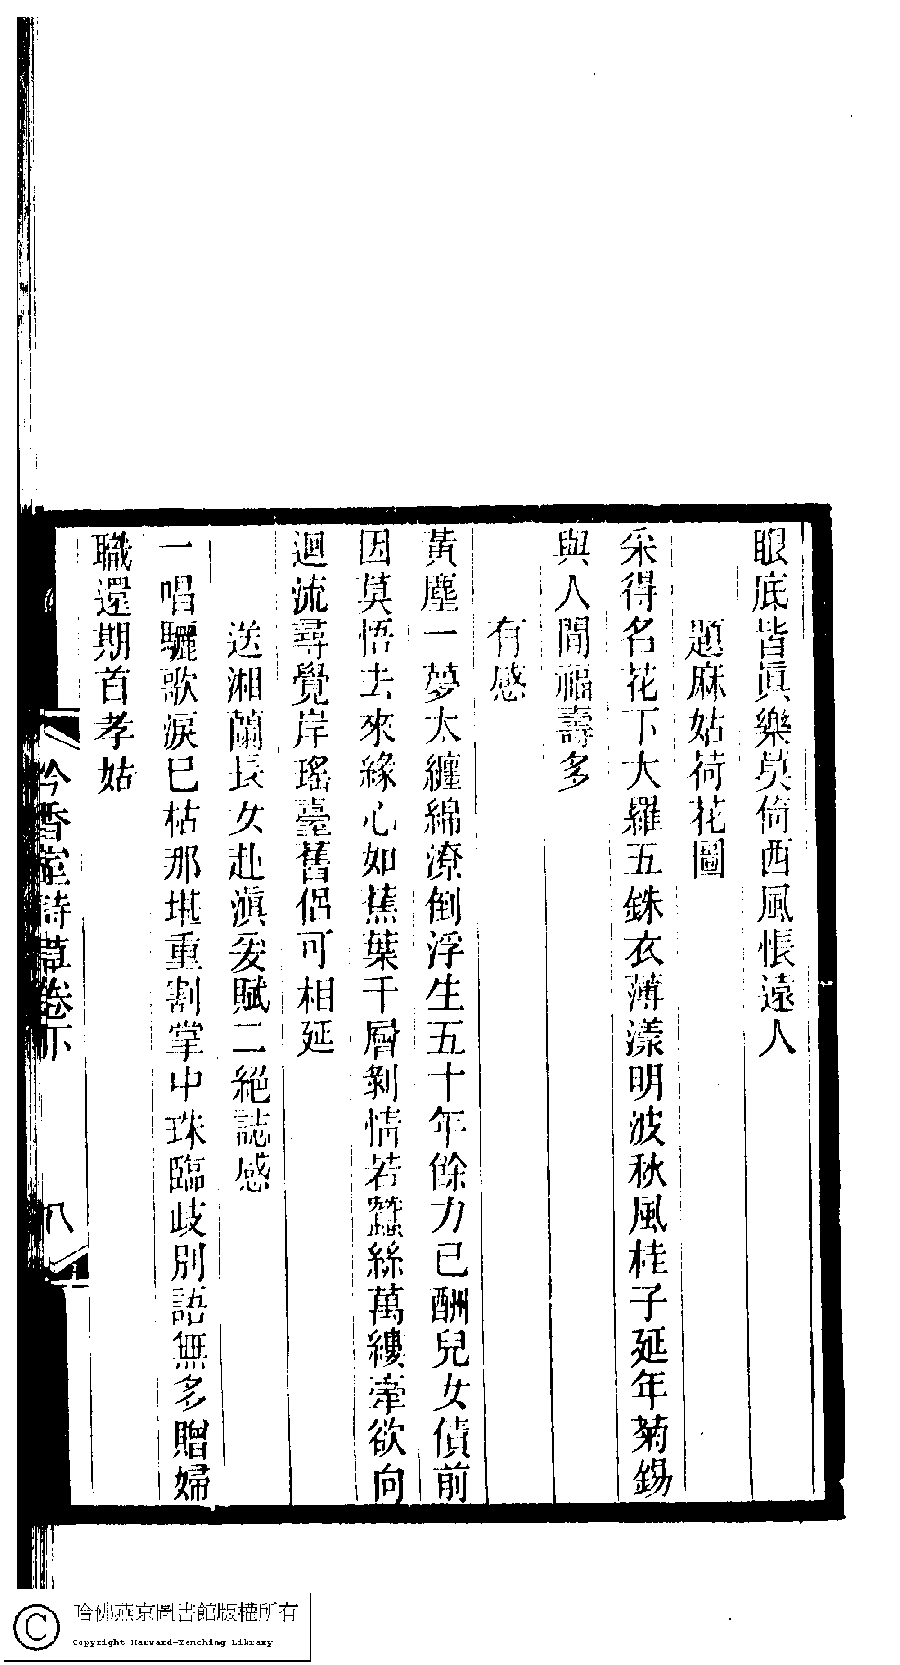 眼底皆眞樂莫倚西風悵遠人
題麻姑荷花圖
采得名花下大羅五銖衣薄漾明波秋風桂子延年菊錫
與人間福壽多
有感
黃塵一夢太纏綿潦倒浮生五十年餘力已酬兒女債前
因莫悟去來緣心如蕉葉千層剝情若蠶絲萬縷牽欲向
迴流尋覺岸瑤臺舊侶可相延
送湘蘭長女赴滇爰賦二絕誌感
一唱驪歌淚已枯那堪重割掌中珠臨歧別語無多贈婦
職還期首孝姑
吟香室詩草卷下
八
哈佛燕京圖書館版權所有
Copyright Harvard-Yenching Library